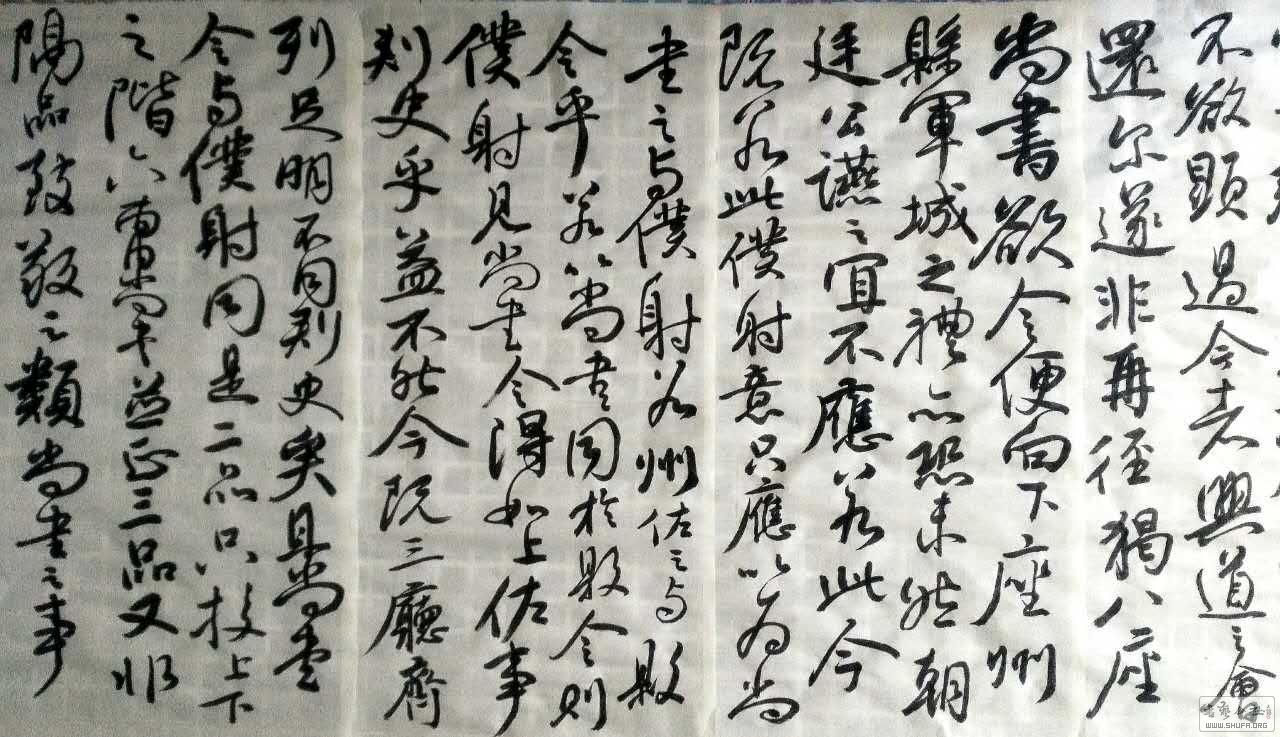 不欲顕過今者興道之會
還尓遂非再径猲八座
尚書欲令便向下座州
縣軍城之禮亦恐未然朝
廷公讌之宜不應若此今
既若此僕射意只應以為尚
書之与僕射若州佐之与縣
令乎若以尚書同於縣令則
僕射見尚書令得如上佐事
刺史乎益不然今既三廳齊
列足明不同刺史矣且尚書
令与僕射同是二品只校上下
之階六曹尚書並正三品又非
隔品致敬之類尚書之事
WWW.SHUFA.ORG